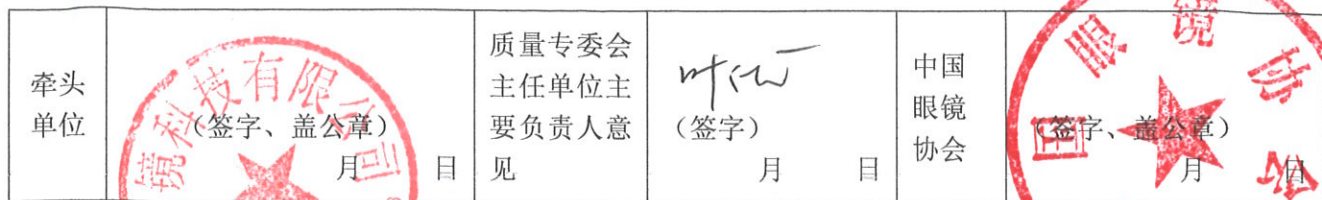 牵头
单位
镜科技有限公司
(签字、盖公章)
月 日
质量专委会
主任单位主
要负责人意
见
(签字)
月 日
中国
眼镜
协会
国眼镜协会
(签字、盖公章)
月 日